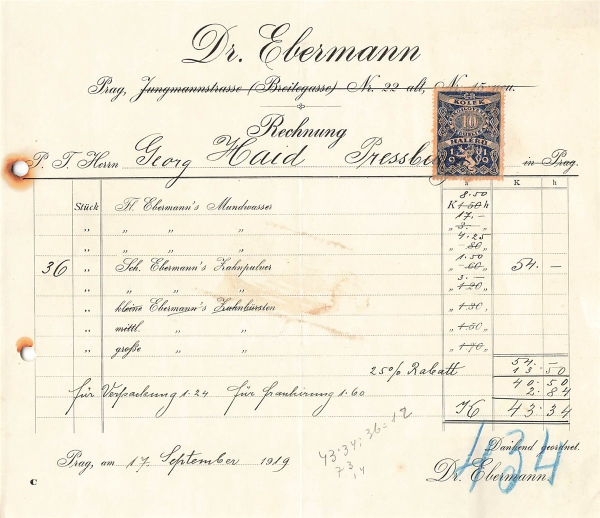 Dr. Ebermann
Prag, Jungmannstrasse (Breitegasse) Nr. 22 alt, N 15 neu.
Rechnung
KOLEK
10
HALÉŘŮ
1919
P. T. Herrn Georg Haid Pressb in Prag.
à K h
8.50
Stück Fl. Ebermann's Mundwasser K 1·50 h
17.-
„ „ „ „ „ 3·- „
4.25
„ „ „ „ „ -·80 „
1.50
36 „ Sch. Ebermann's Zahnpulver „ -·60 „ 54. —
3.-
„ „ „ „ „ 1·20 „
„ kleine Ebermann's Zahnbürsten „ 1·30 „
„ mittl. „ „ „ 1·50 „
„ große „ „ „ 1·70 „
54. —
25% Rabatt 13.50
40.50
für Verpackung 1.24 für frankirung 1.60 2.84
K 43.34
43·34 : 36 = 12
73
14
434
Dankend geordnet.
Prag, am 17. September 1919
Dr. Ebermann.
C